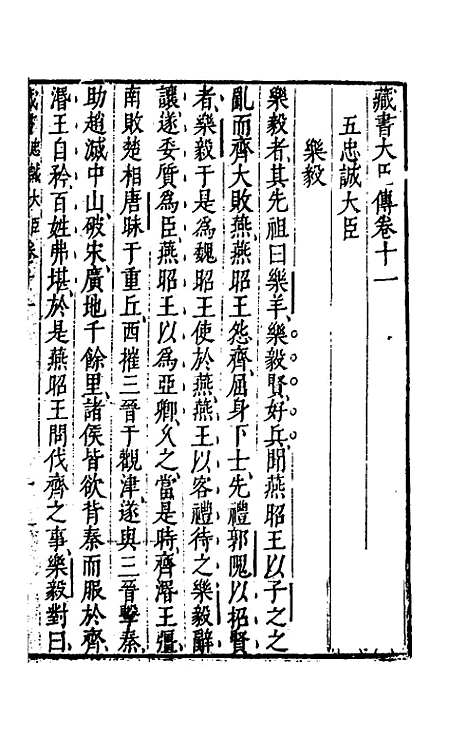 藏書大臣傳卷十一
五忠誠大臣
樂毅
樂毅者其先祖曰樂羊樂毅賢好兵聞燕昭王以子之之
亂而齊大敗燕燕昭王怨齊屈身下士先禮郭隗以招賢
者樂毅于是為魏昭王使於燕燕王以客禮待之樂毅辭
讓遂委質為臣燕昭王以為亞卿久之當是時齊湣王彊
南敗楚相唐眛于重丘西摧三晉于觀津遂與三晉擊秦
助趙滅中山破宋廣地千餘里諸侯皆欲背秦而服於齊
湣王自矜百姓弗堪於是燕昭王問伐齊之事樂毅對曰
藏書忠誠大臣卷十一